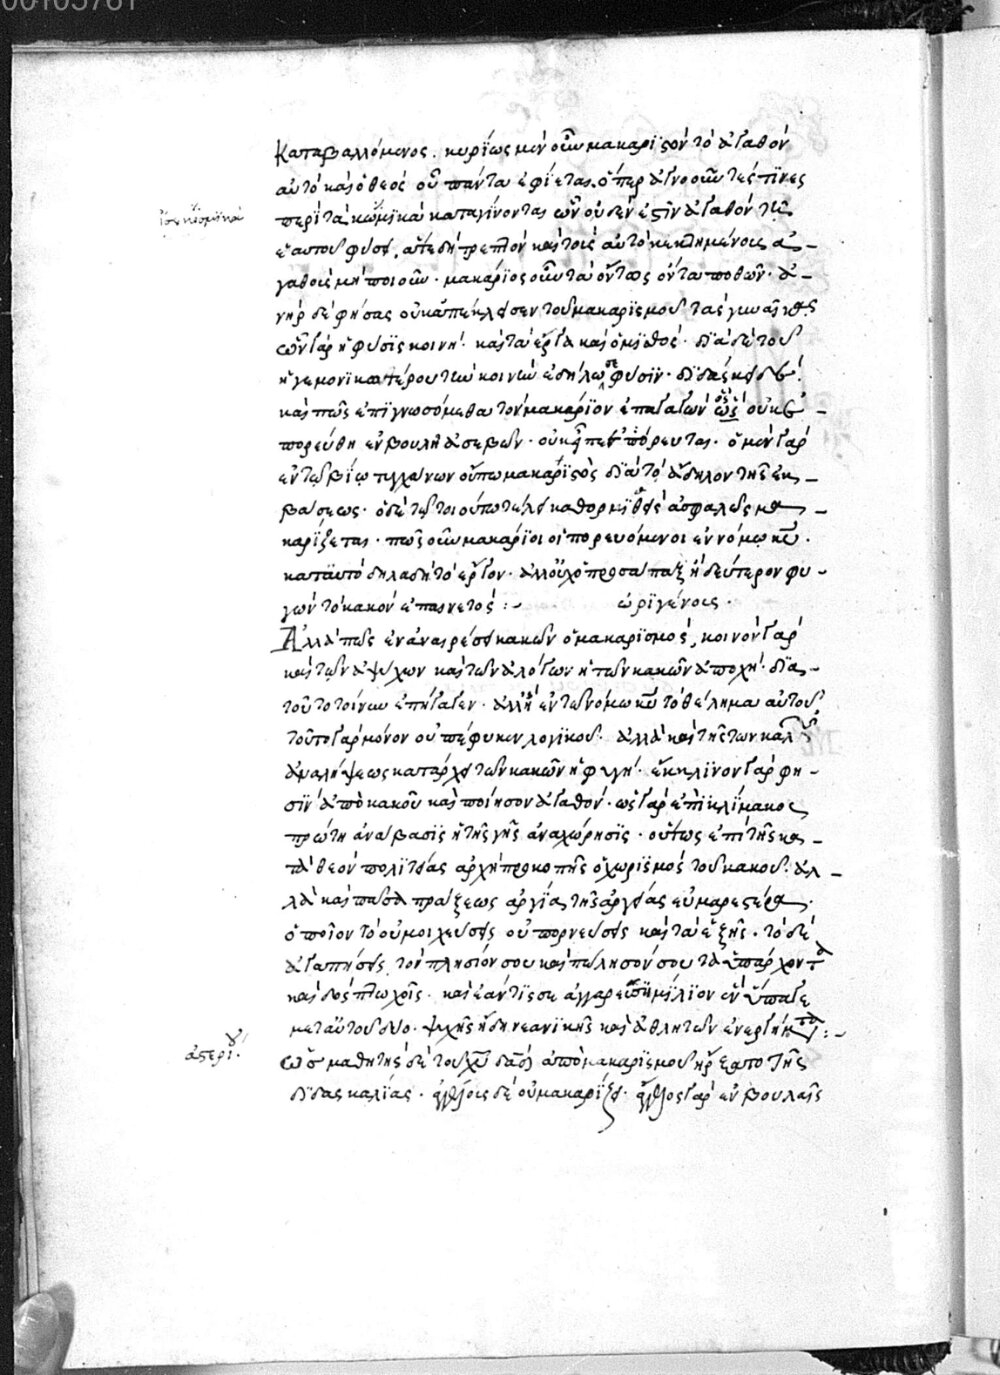 00105761
καταβαλλόμενος. κυρίως μὲν οὖν μακαριστὸν τὸ ἀγαθὸν
αὐτὸ καὶ ὁ θεὸς οὗ πάντα ἐφίεται. ὅπερ ἀγνοοῦντές τινες
περὶ τὰ κωμικὰ καταγίνονται ὧν οὐδέν ἐστιν ἀγαθὸν τῇ
ἑαυτοῦ φύσει, ἅτε δὴ τρεπτὸν καὶ τοὺς αὐτὸ κεκλημένους ἀ-
γαθοὺς μὴ ποιοῦν. μακάριος οὖν ὁ τὰ ὄντως ὄντα ποθῶν. ἀ-
νὴρ δὲ φήσας οὐκ ἀπέκλεισεν τοῦ μακαρισμοῦ τὰς γυναῖκας
ὧν γὰρ ἡ φύσις κοινὴ. καὶ τὰ ἔργα καὶ ὁ μισθός. διὰ δὲ τοῦ
ἡγεμονικωτέρου τὴν κοινὴν ἐδήλωσε φύσιν. διδάσκει δὲ
καὶ πῶς ἐπιγνωσόμεθα τὸν μακάριον ἐπαγαγὼν ὃς οὐκ ἐ-
πορεύθη ἐν βουλῇ ἀσεβῶν. οὐκ εἶπεν πορεύεται. ὁ μὲν γὰρ
ἐν τῷ βίῳ τυγχάνων οὔπω μακαριστὸς διὰ τὸ ἄδηλον τῆς ἐκ-
βάσεως. ὁ δὲ
καρίζεται. πῶς οὖν μακάριοι οἱ πορευόμενοι ἐν νόμῳ κυ.
κατ αὐτὸ δηλαδὴ τὸ ἔργον. ἀλλ οὐχ ὁ πρὸς ἅπαξ ἢ δεύτερον φυ-
γὼν τὸ κακὸν ἐπαινετὸς :- ὠριγένους.
Ἀλλὰ πῶς ἐν ἀναιρέσει κακῶν ὁ μακαρισμός, κοινὸν γὰρ
καὶ τῶν ἀψύχων καὶ τῶν ἀλόγων ἡ τῶν κακῶν ἀποχὴ. διὰ
τοῦτο τοίνυν ἐπήγαγεν. ἀλλ ἢ ἐν τῷ νόμῳ κυ τὸ θέλημα αὐτοῦ
τοῦτο γὰρ μόνον οὗ πέφυκεν λογικοῦ. ἀλλὰ καὶ τῆς τῶν καλῶν
ἀναλήψεως κατάρχει τῶν κακῶν ἡ φυγὴ. ἔκκλινον γάρ φη-
σὶν ἀπὸ κακοῦ καὶ ποίησον ἀγαθόν. ὡς γὰρ ἐπὶ κλίμακος
πρώτη ἀνάβασις ἡ τῆς γῆς ἀναχώρησις. οὕτως ἐπὶ τῆς κα-
τὰ θεὸν πολιτείας ἀρχὴ προκοπῆς ὁ χωρισμὸς τοῦ κακοῦ. ἀλ-
λὰ καὶ πᾶσα πράξεως ἀργία τῆς ἐνεργείας εὐμαρεστέρα.
ὁποῖον τὸ οὐ μοιχεύσεις οὐ πορνεύσεις καὶ τὰ ἑξῆς. τὸ δὲ
ἀγαπήσεις τὸν πλησίον σου καὶ πώλησόν σου τὰ ὑπάρχοντα
καὶ δὸς πτωχοῖς. καὶ ἐάν τις σε ἀγγαρεύσῃ μίλιον ἓν ὕπαγε
μετ αὐτοῦ δύο. ψυχῆς ἤδη νεανικῆς καὶ ἀθλητῶν
ἀστερίου.
ὡς μαθητὴς δὲ τοῦ χυ δαδ ἀπὸ μακαρισμοῦ ἤρξατο τῆς
διδασκαλίας. ἀγγέλους δὲ οὐ μακαρίζει. ἄγγελος γὰρ ἐν βουλαῖς